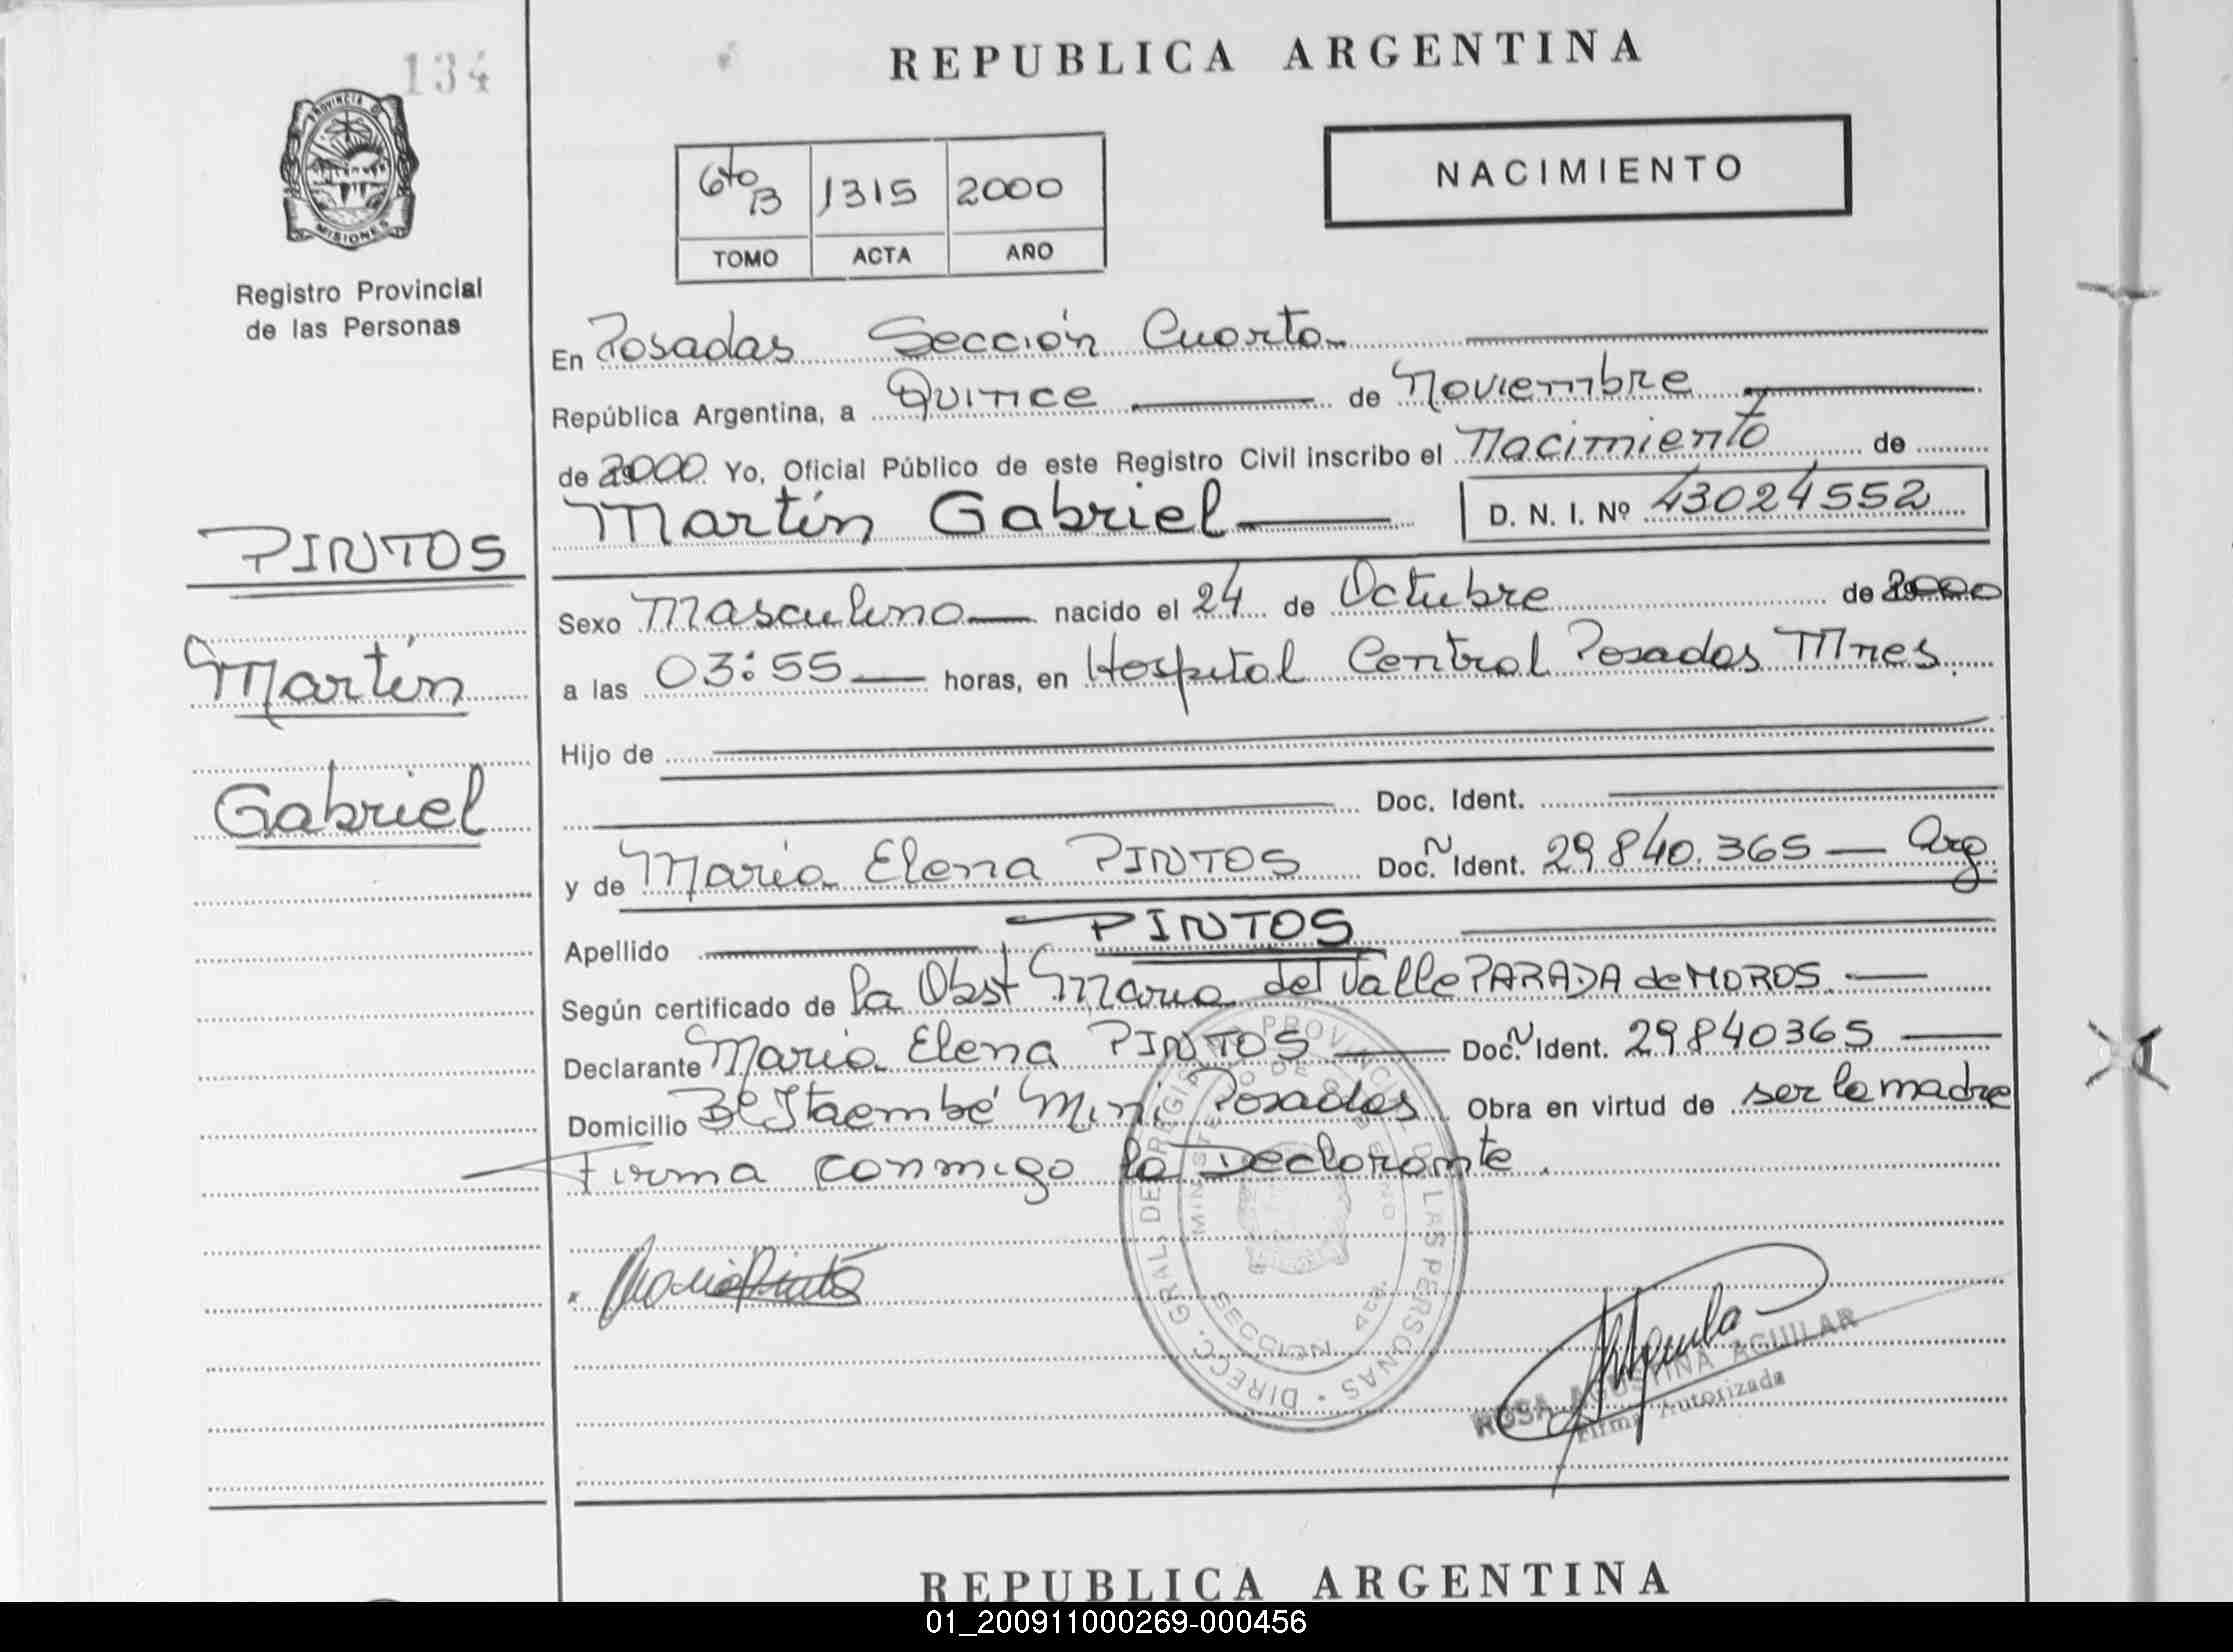 134
REPUBLICA ARGENTINA
PROVINCIA DE
MISIONES
Registro Provincial
de las Personas
NACIMIENTO
6to B 1315 2000
TOMO ACTA AÑO
En Posadas Sección Cuarta
República Argentina, a Quince de Noviembre
de 2000 Yo, Oficial Público de este Registro Civil inscribo el Nacimiento de
Martín Gabriel D. N. I. Nº 43024552
PINTOS
Martín
Gabriel
Sexo Masculino nacido el 24 de Octubre de 2000
a las 03:55 horas, en Hospital Central Posadas Mnes.
Hijo de
Doc. Ident.
y de María Elena PINTOS Doc. N Ident. 29.840.365 - Arg.
Apellido PINTOS
Según certificado de la Obst María del Valle PARADA de MOROS
Declarante María Elena PINTOS Doc. N Ident. 29840365
Domicilio Bº Itaembé Miní Posadas Obra en virtud de ser la madre
Firma conmigo la Declarante.
DIRECC. GRAL. DE REGISTRO PROVINCIAL DE LAS PERSONAS
MINISTERIO DE GOBIERNO
SECCION 4ta.
ROSA AGUSTINA AGUILAR
Firma Autorizada
REPUBLICA ARGENTINA
01_200911000269-000456